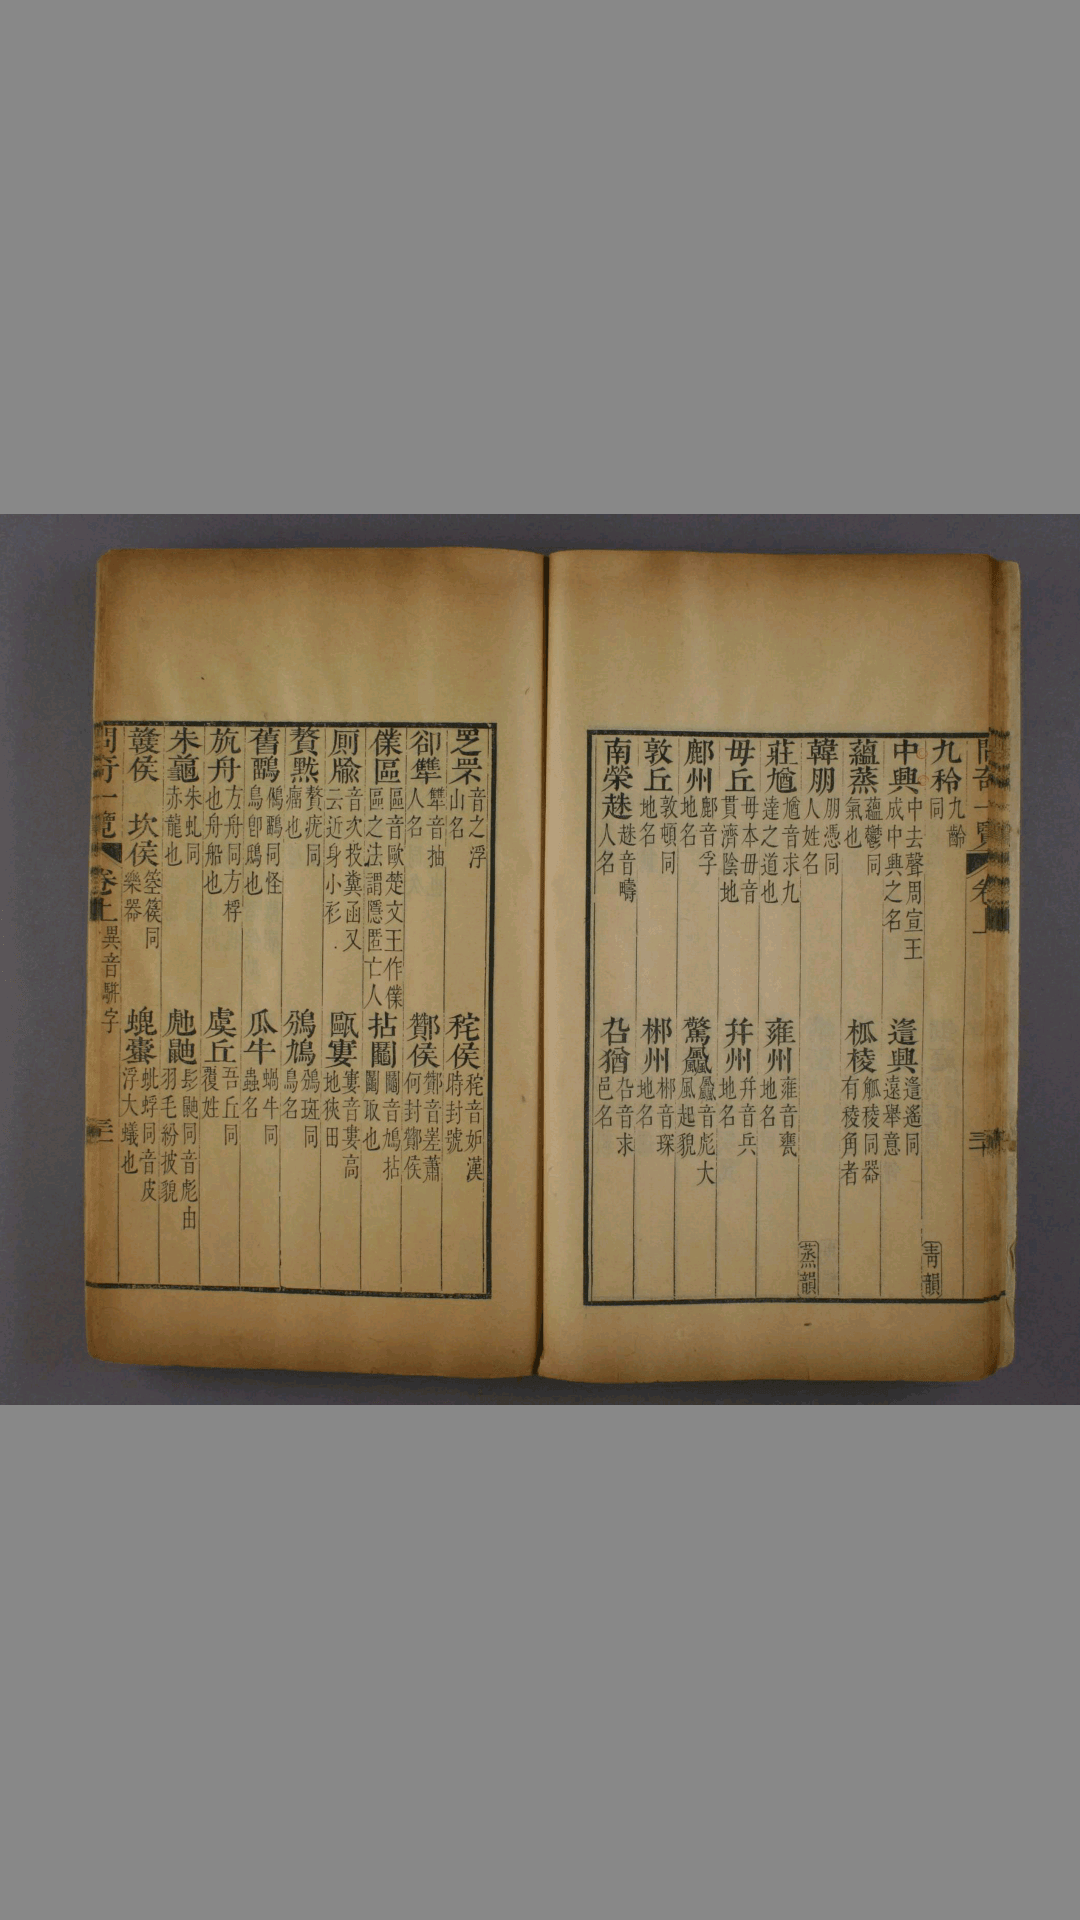 問奇一覽 卷上 三十
九秢 九齡同
青韻
中興 中去聲周宣王成中興之名 逺興 遙同遠舉意
蘊蒸 蘊鬱同氣也 柧棱 觚稜同器有稜角者
韓朋 朋憑同人姓名
蒸韻
莊馗 馗音求九達之道也 雍州 雍音甕地名
毋丘 毋本毌音貫濟陰地 幷州 幷音兵地名
鄜州 鄜音孚地名 驚飍 飍音彪大風起貌
敦丘 敦頓同地名 郴州 郴音琛地名
南榮趎 趎音疇人名 叴猶 叴音求邑名
音之浮山名 秺侯 秺音妬漢時封號
卻犨 犨音抽人名 酇侯 酇音嵳蕭何封酇侯
僕區 區音歐楚文王作僕區之法謂隱匿亡人 拈鬮 鬮音鳩拈鬮取也
厠牏 音次投糞函又云近身小衫 甌窶 窶音婁高地狹田
贅黙 贅疣同瘤也 鳻鳩 鳻斑同鳥名
舊鶹 鵂鶹同怪鳥卽鴟也 瓜牛 蝸牛同蟲名
斻舟 方舟同方桴也舟船也 虞丘 吾丘同覆姓
朱龜 朱虬同赤龍也 髟鼬同音彪由羽毛紛披貌
䪐侯 坎侯 箜篌同樂器 螕蜉同音皮浮大蟻也
問奇一覽 卷上 異音駢字 三十一